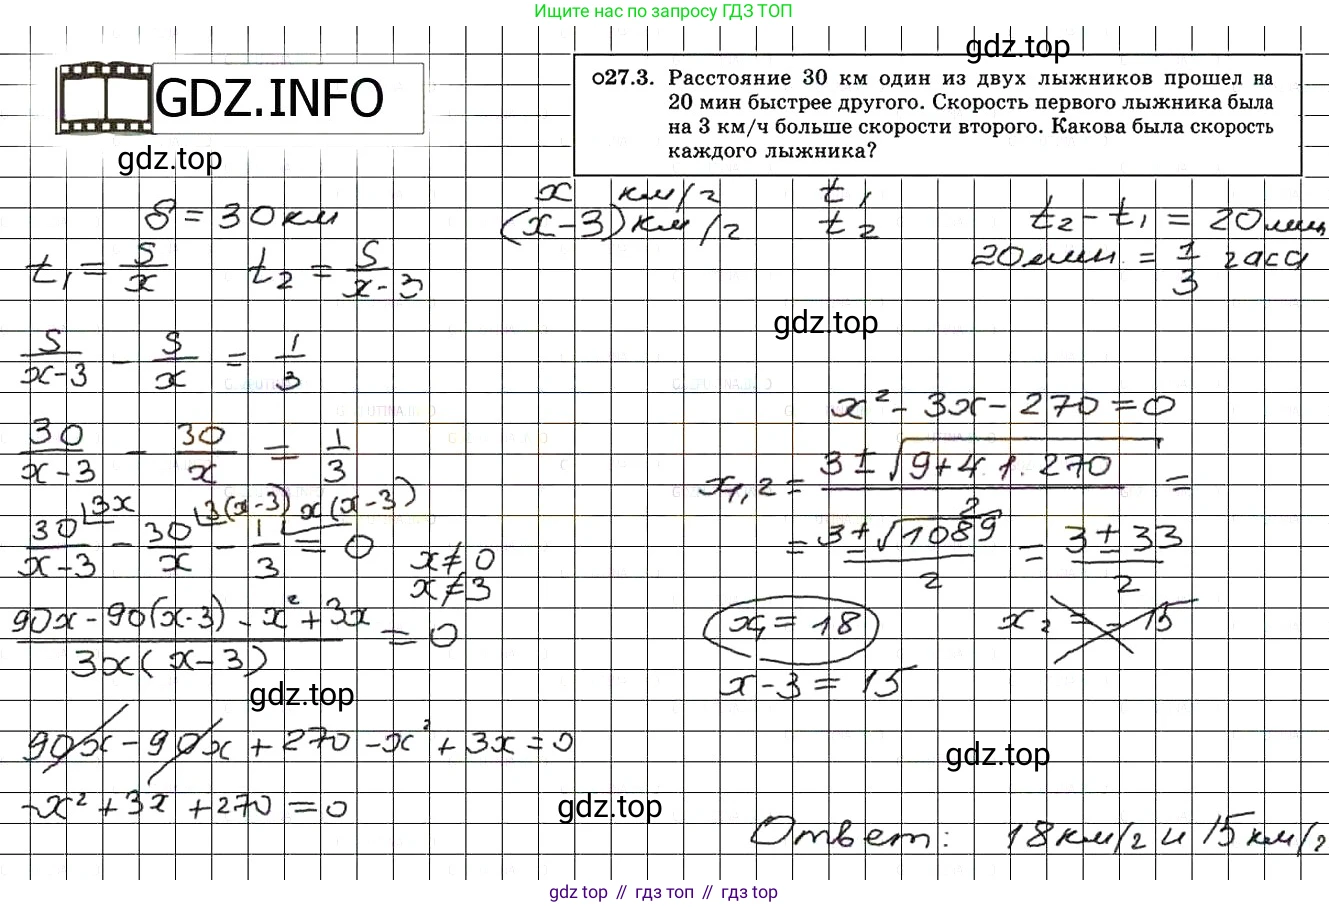 Ищите нас по запросу ГДЗ ТОП
GDZ.INFO
gdz.top
gdz.top
027.3. Расстояние 30 км один из двух лыжников прошел на
20 мин быстрее другого. Скорость первого лыжника была
на 3 км/ч больше скорости второго. Какова была скорость
каждого лыжника?
S = 30 км
x км/ч t₁
(x-3) км/ч t₂
t₂ - t₁ = 20 мин
20 мин = 1/3 часа
t₁ = S/x t₂ = S/(x-3)
gdz.top
S/(x-3) - S/x = 1/3
30/(x-3) - 30/x = 1/3
30/(x-3) 3x - 30/x 3(x-3) - 1/3 x(x-3) = 0
x ≠ 0
x ≠ 3
(90x - 90(x-3) - x² + 3x)/(3x(x-3)) = 0
gdz.top
90x - 90x + 270 - x² + 3x = 0
-x² + 3x + 270 = 0
gdz.top
x² - 3x - 270 = 0
x₁,₂ = (3 ± √(9+4·1·270))/2 =
= (3 ± √1089)/2 = (3 ± 33)/2
x₁ = 18 x₂ = -15
x - 3 = 15
gdz.top
Ответ: 18 км/ч и 15 км/ч
gdz top // гдз топ // gdz top